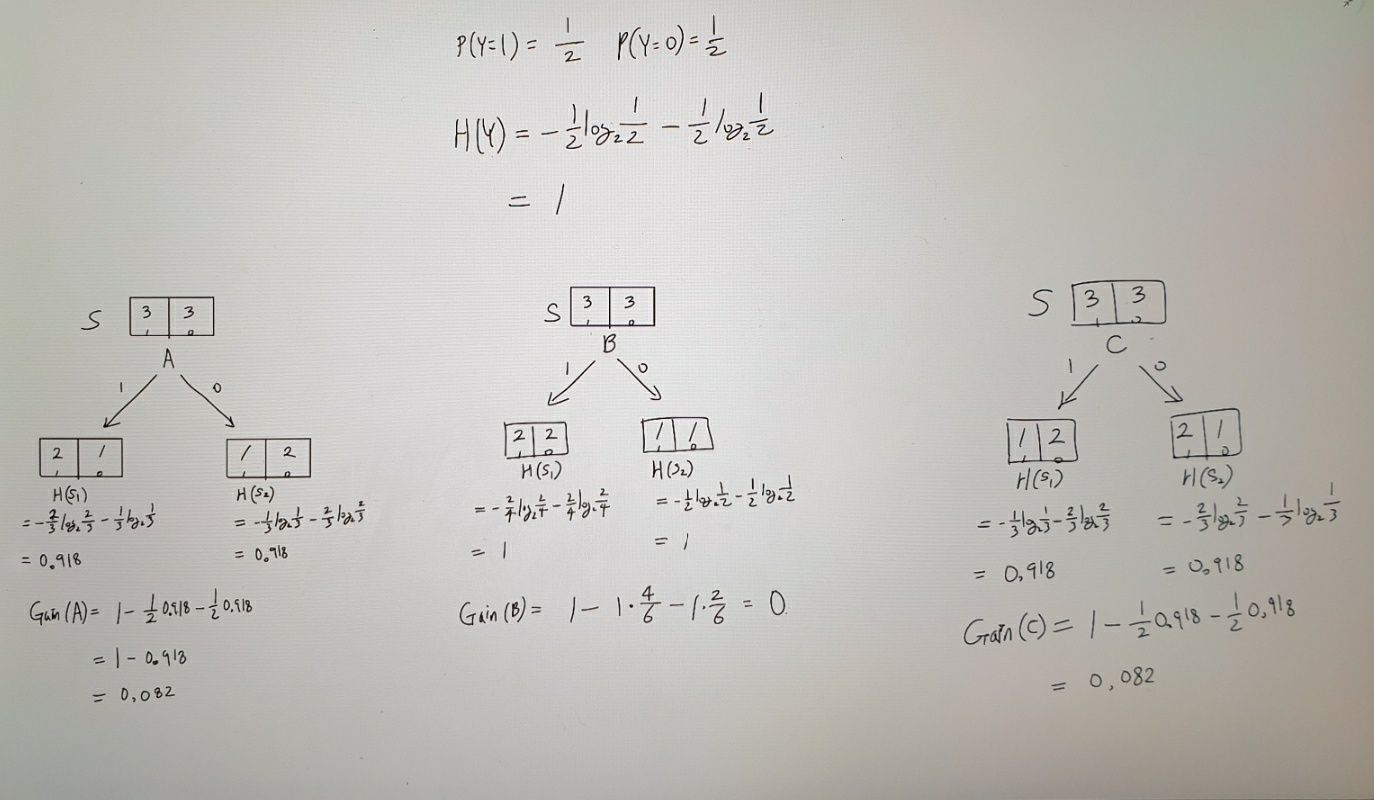 P(Y=1) = 1/2 P(Y=0) = 1/2
H(Y) = - 1/2 log₂ 1/2 - 1/2 log₂ 1/2
= 1
S 3 3
1 0
A
1 0
2 1
1 0
1 2
1 0
H(S₁)
= - 2/3 log₂ 2/3 - 1/3 log₂ 1/3
= 0.918
H(S₂)
= - 1/3 log₂ 1/3 - 2/3 log₂ 2/3
= 0.918
Gain(A) = 1 - 1/2 0.918 - 1/2 0.918
= 1 - 0.918
= 0,082
S 3 3
1 0
B
1 0
2 2
1 0
1 1
1 0
H(S₁)
= - 2/4 log₂ 2/4 - 2/4 log₂ 2/4
= 1
H(S₂)
= - 1/2 log₂ 1/2 - 1/2 log₂ 1/2
= 1
Gain(B) = 1 - 1 · 4/6 - 1 · 2/6 = 0
S 3 3
1 0
C
1 0
1 2
1 0
2 1
1 0
H(S₁)
= - 1/3 log₂ 1/3 - 2/3 log₂ 2/3
= 0,918
H(S₂)
= - 2/3 log₂ 2/3 - 1/3 log₂ 1/3
= 0,918
Gain(C) = 1 - 1/2 0,918 - 1/2 0,918
= 0,082